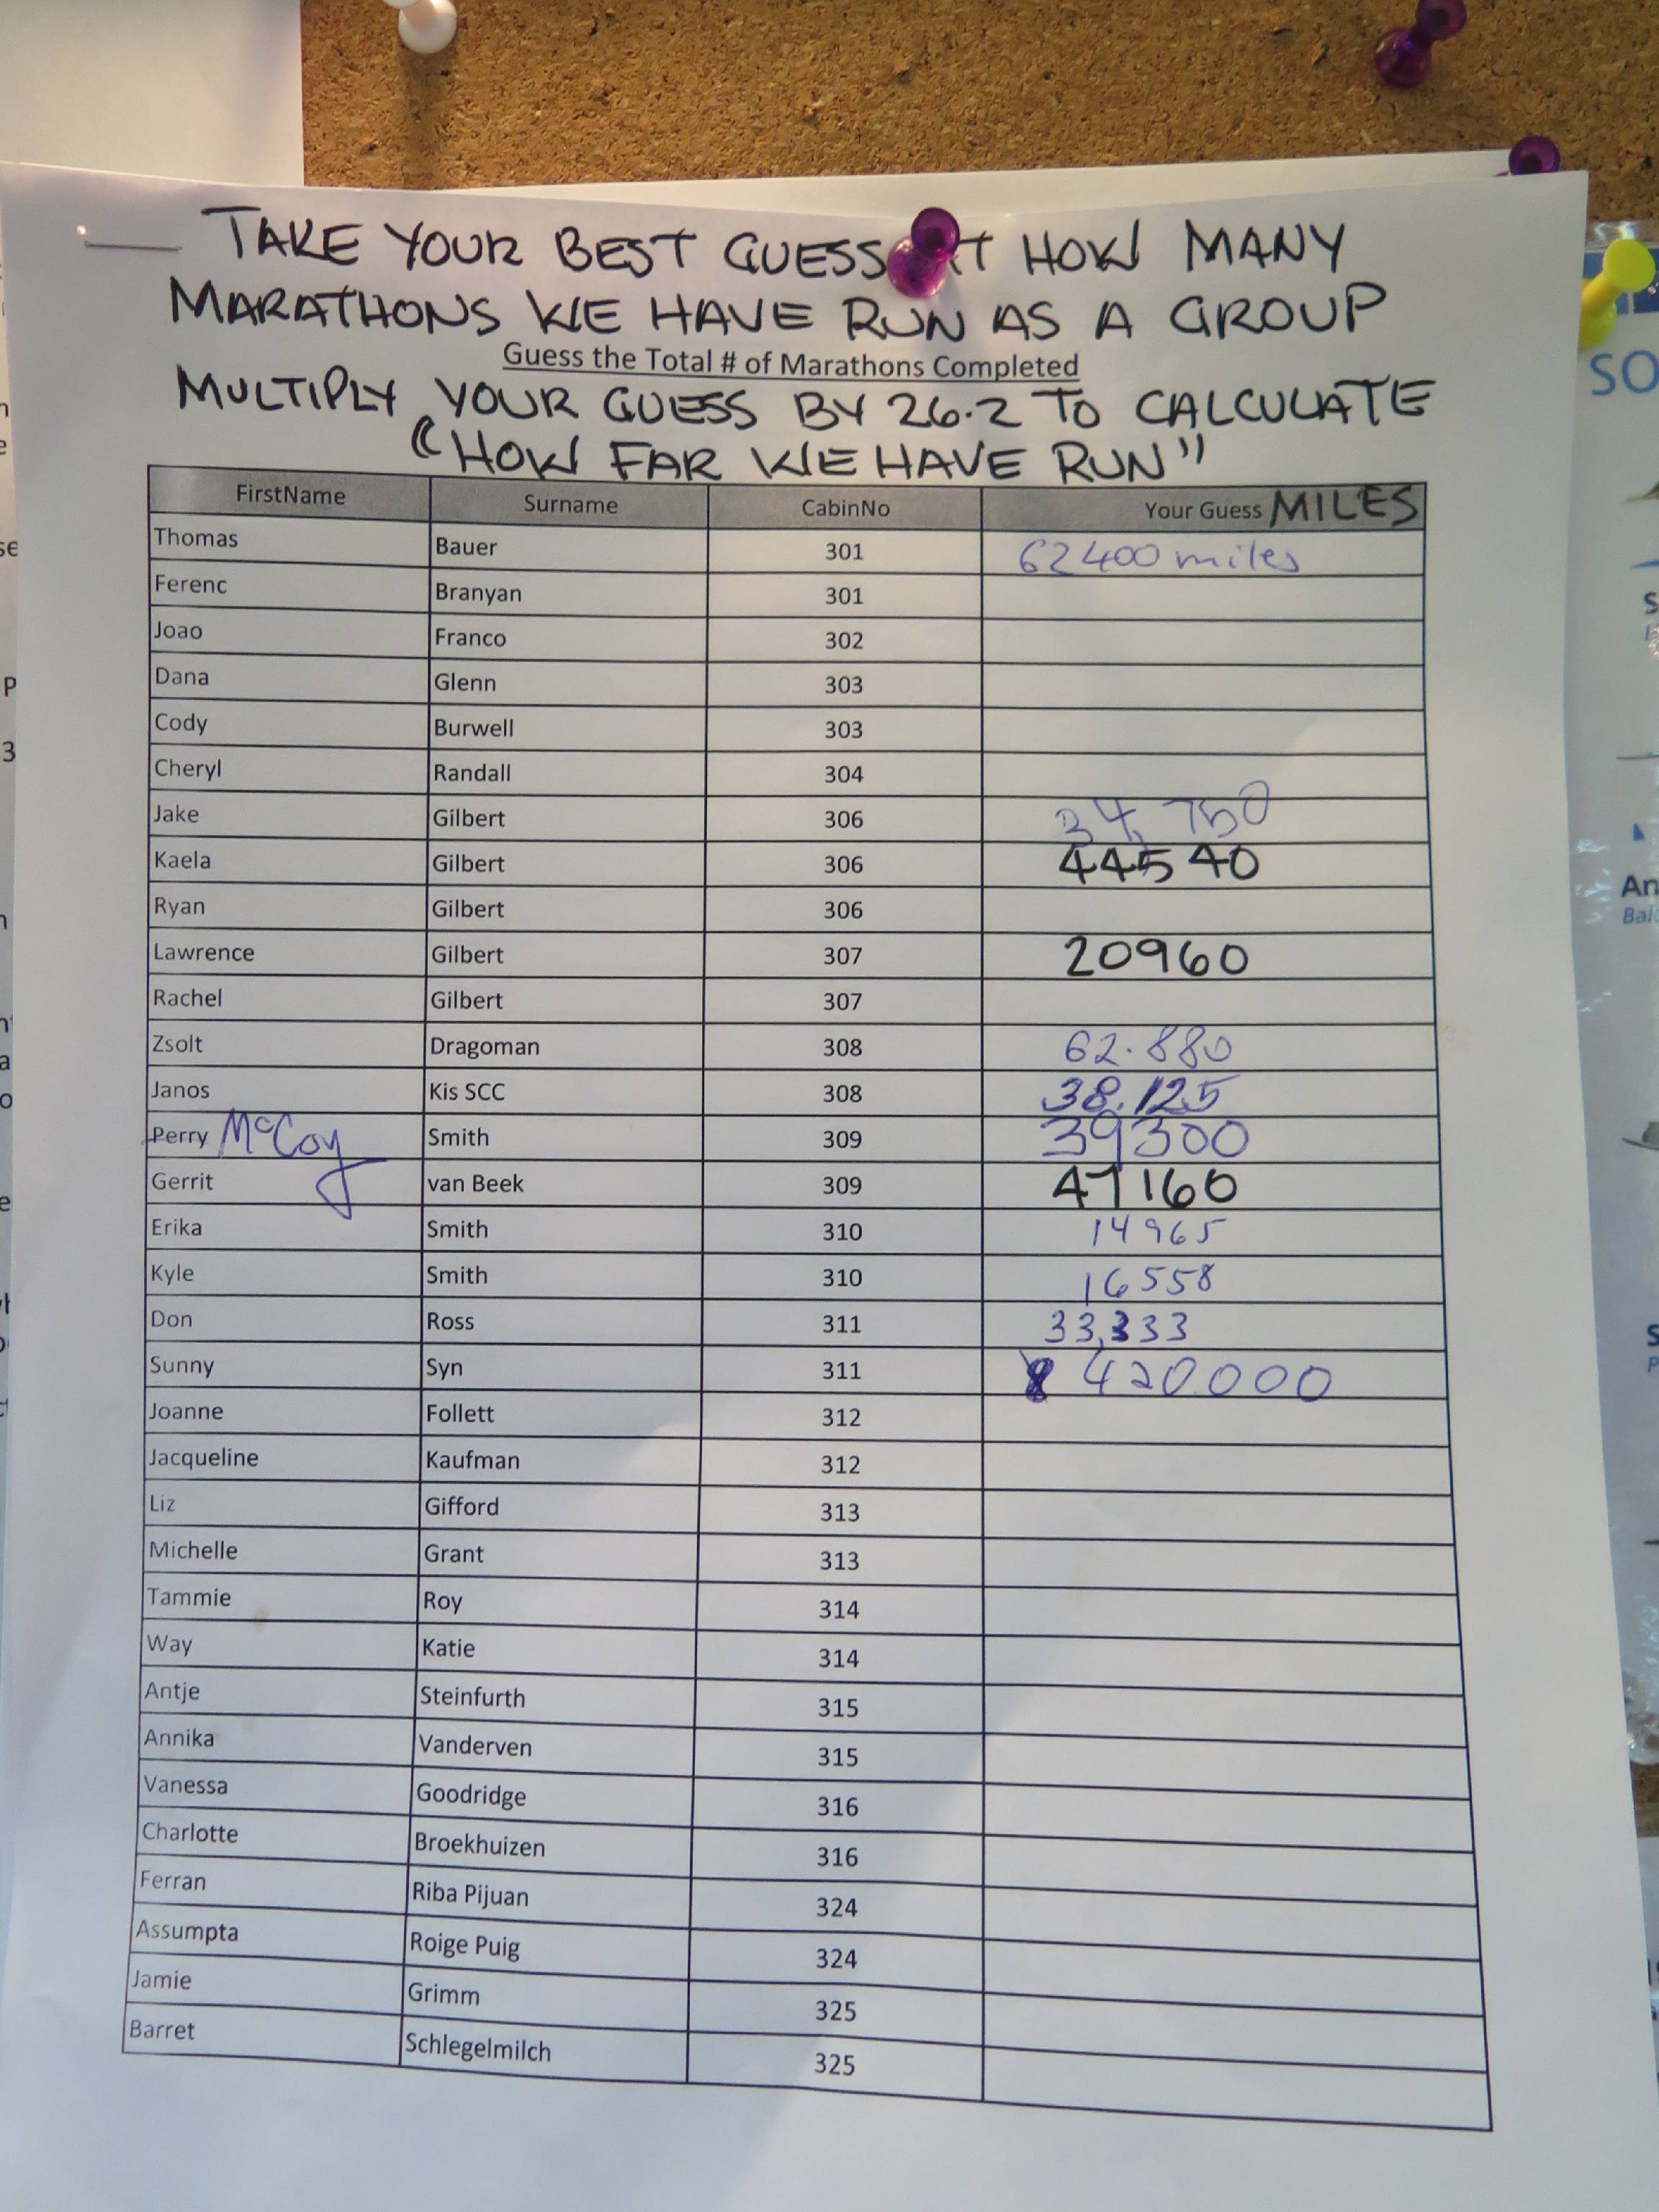 TAKE YOUR BEST GUESS AT HOW MANY
MARATHONS WE HAVE RUN AS A GROUP
Guess the Total # of Marathons Completed
MULTIPLY YOUR GUESS BY 26.2 TO CALCULATE
"HOW FAR WE HAVE RUN"
FirstName Surname CabinNo Your Guess MILES
Thomas Bauer 301 62400 miles
Ferenc Branyan 301
Joao Franco 302
Dana Glenn 303
Cody Burwell 303
Cheryl Randall 304
Jake Gilbert 306 34,750
Kaela Gilbert 306 44540
Ryan Gilbert 306
Lawrence Gilbert 307 20960
Rachel Gilbert 307
Zsolt Dragoman 308 62.880
Janos Kis SCC 308 38.125
Perry McCoy Smith 309 39300
Gerrit van Beek 309 47160
Erika Smith 310 14965
Kyle Smith 310 16558
Don Ross 311 33,333
Sunny Syn 311 420.000
Joanne Follett 312
Jacqueline Kaufman 312
Liz Gifford 313
Michelle Grant 313
Tammie Roy 314
Way Katie 314
Antje Steinfurth 315
Annika Vanderven 315
Vanessa Goodridge 316
Charlotte Broekhuizen 316
Ferran Riba Pijuan 324
Assumpta Roige Puig 324
Jamie Grimm 325
Barret Schlegelmilch 325
SO
An